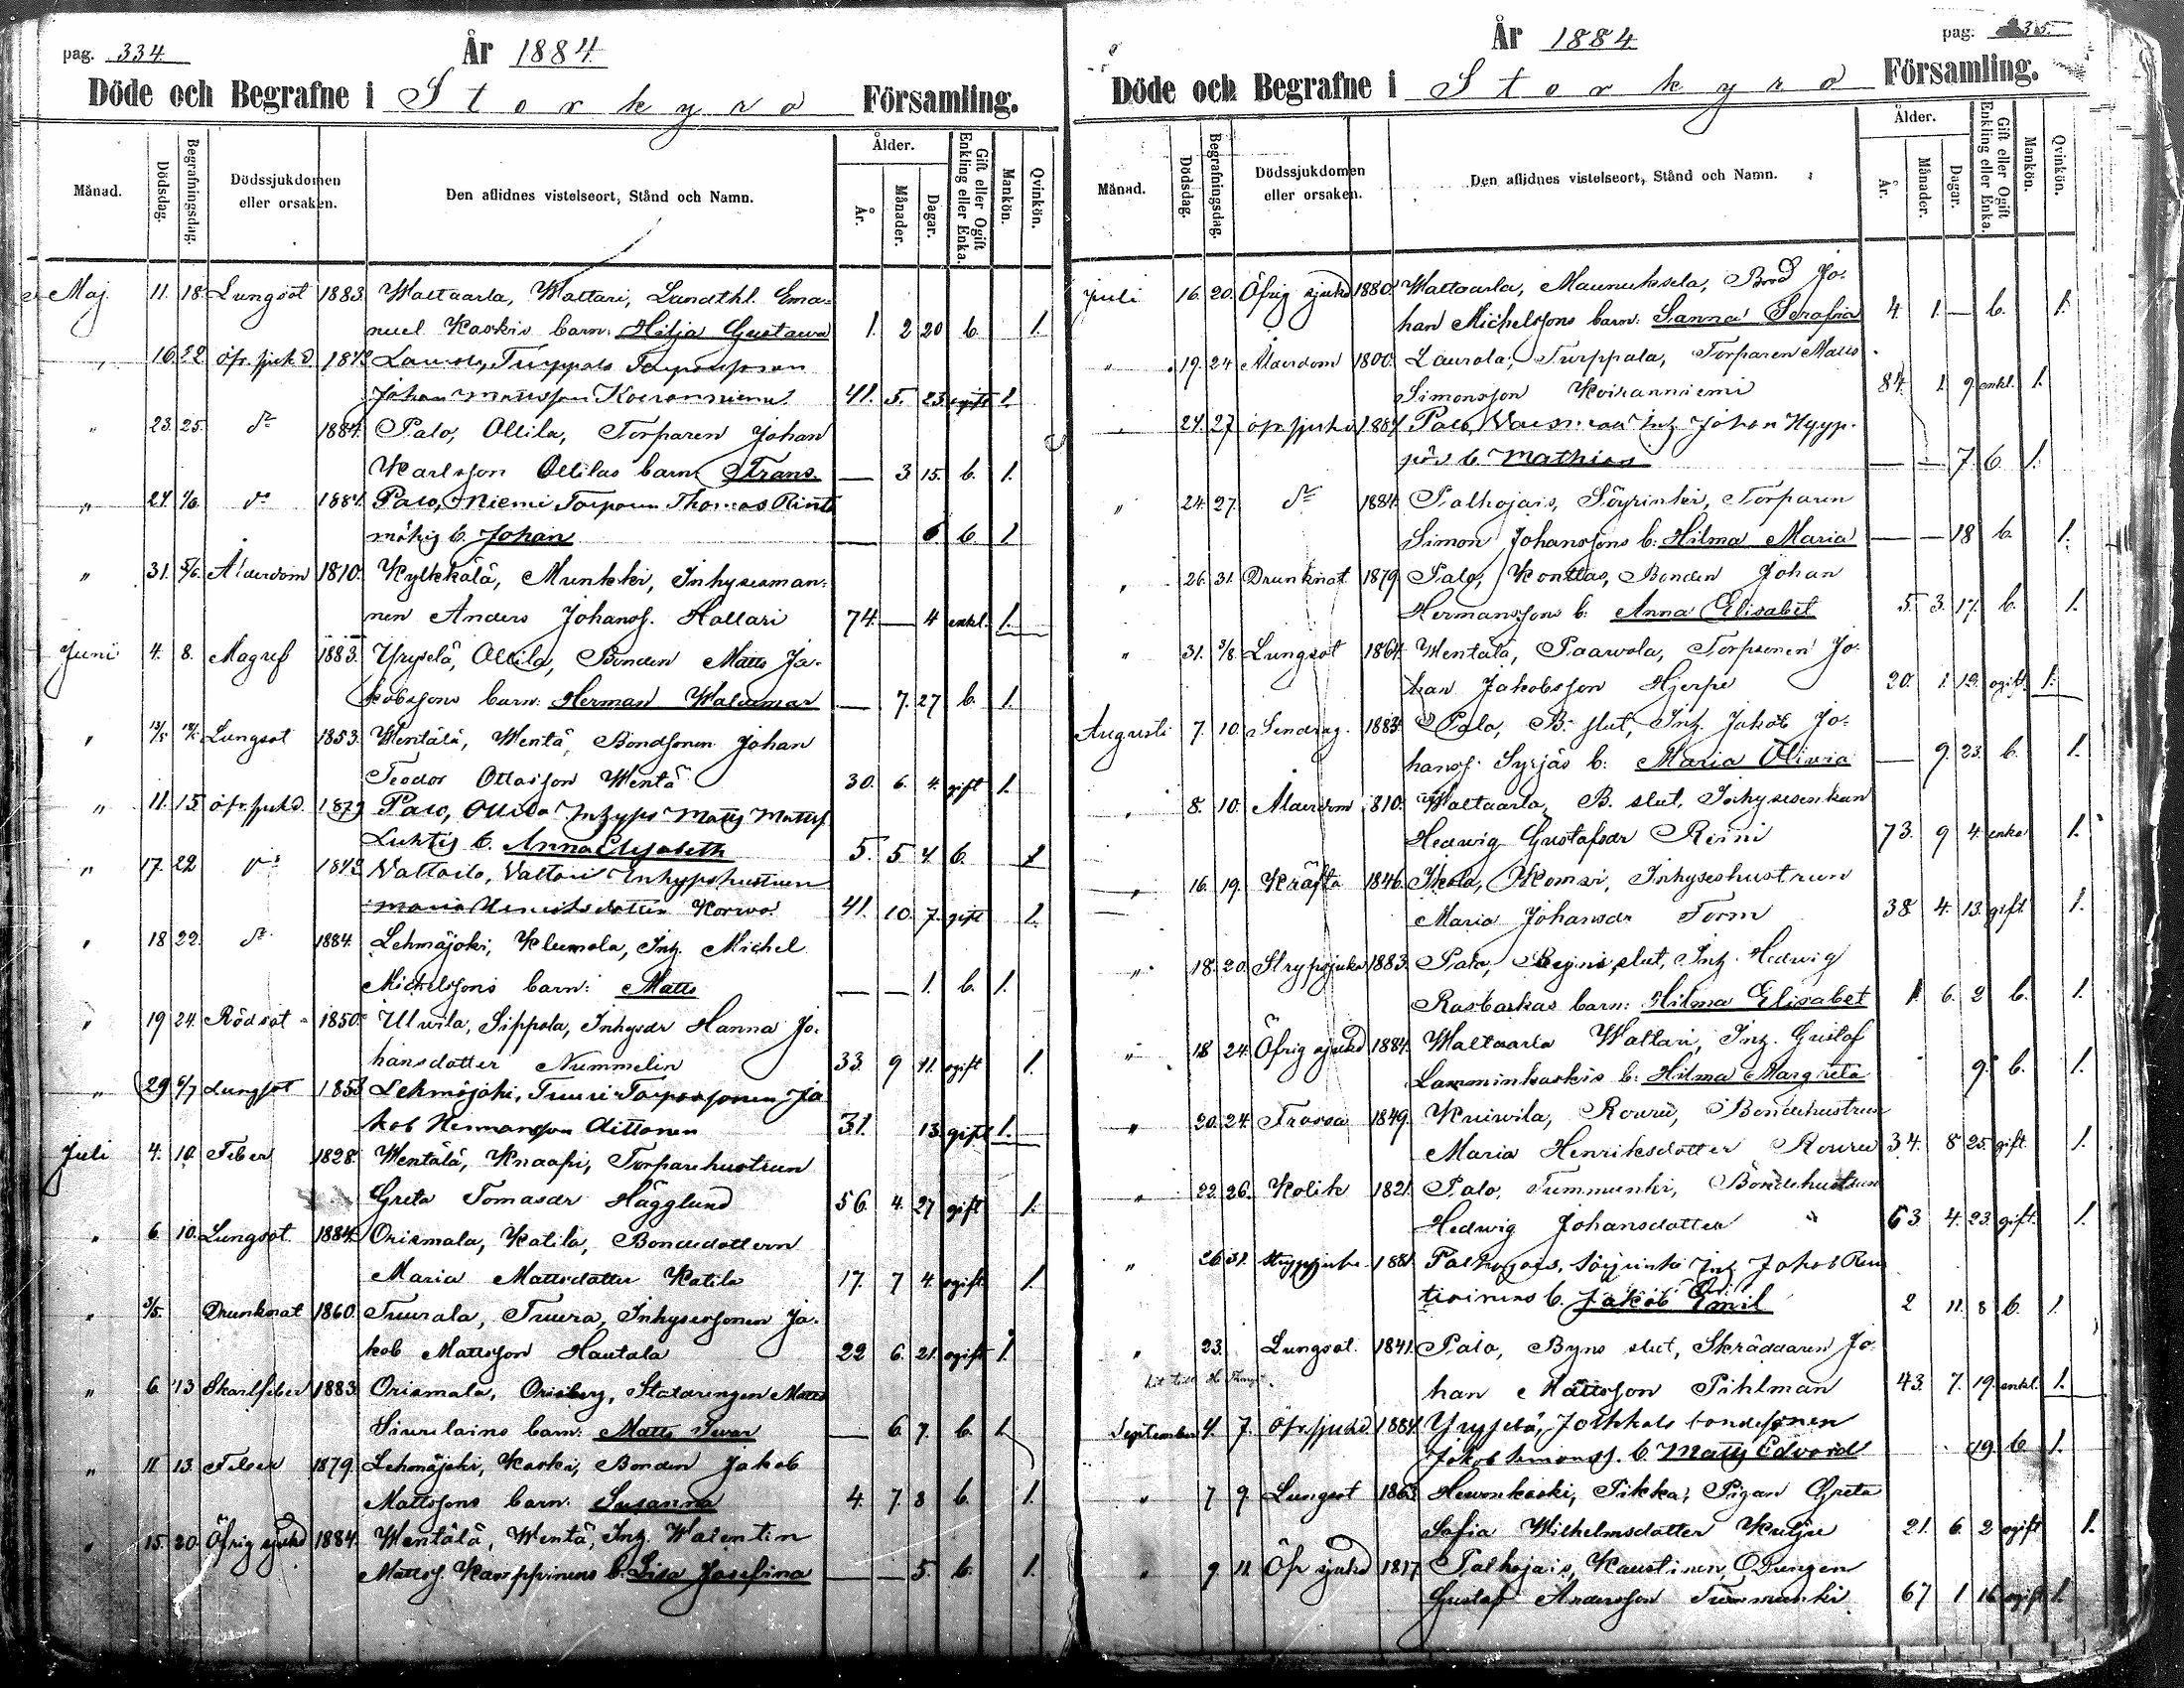 pag. 334.
År 1884.
Döde och Begrafne i Storkyro Församling.
Månad.
Dödsdag.
Begrafningsdag.
Dödssjukdomen
eller orsaken.
Den aflidnes vistelseort, Stånd och Namn.
Ålder.
År.
Månader.
Dagar.
Gift eller Ogift
Enkling eller Enka.
Mankön.
Qvinkön.
Maj 11. 18. Lungsot 1883. Waltaarla, Waltari, Landthl. Ema-
nuel Kaskis barn: Hilja Gustawa 1. 2 20 b. 1.
" 16. 22 öfr. sjukd. 1842 Laurola, Turppala Torparesonen
Johan Mattsson Koiranniemi 41. 5. 23. ogift 1.
" 23. 25. do 1884. Palo, Ollila, Torparen Johan
Karlsson Ollilas barn Frans — 3 15. b. 1.
" 27. 1/6. do 1884. Palo, Niemi Torparen Thomas Rinta
mäkis b. Johan — 6. b. 1
" 31. 5/6. Ålderdom 1810. Kylkkälä, Munkki, Inhysesman-
nen Anders Johanss. Hallari 74. — 4 enkl. 1.
Juni 4. 8. Magref 1883. Yryselä, Ollila, Bonden Matts Ja-
kobssons barn: Herman Waldemar — 7. 27 b. 1.
" 13/5 Lungsot 1853. Wentälä, Wentä, Bondsonen Johan
Teodor Ottosson Wentä 30. 6. 4. gift 1.
" 11. 15. öfr. sjukd. 1879 Palo, Ollila Inhyses Matts Matts.
Luhtis b. Anna Elisabeth 5. 5 4 b. 1
" 17. 22 do 1842 Valtarla, Valtari Inhyseshustrun
Maria Henriksdotter Korwa 41. 10. 7. gift 1.
" 18 22. do 1884. Lehmäjoki, Klemola, Inh. Michel
Michelssons barn: Matts — — 1. b. 1.
" 19 24. Rödsot 1850. Ulwila, Sippola, Inhysdr Hanna Jo-
hansdotter Nummelin 33. 9 11. ogift 1.
" 29 6/7 Lungsot 1853 Lehmäjoki, Tuuri Torparesonen Ja
kob Hermansson Aittonen 31. 13. gift 1.
Juli 4. 10. Feber 1828. Wentälä, Knaapi, Torparehustrun
Greta Tomasdr Hägglund 56. 4. 27 gift 1.
" 6 10. Lungsot 1884. Orismala, Katila, Bondedottern
Maria Mattsdotter Katila 17. 7 4. ogift 1.
" 3/5. Drunknat 1860. Tuurala, Tuura, Inhysessonen Ja-
kob Mattsson Hautala 22 6. 21. ogift 1.
" 6 13 Skarlfeber 1883. Orismala, Orisberg, Statdrängen Matts
Siurulains barn: Matts Iwar — 6 7. b. 1.
" 11 13. Feber 1879. Lehmäjoki, Kaski, Bonden Jakob
Mattssons barn: Susanna 4. 7. 8 b. 1.
" 15. 20. Öfrig sjukd 1884. Wentälä, Wentä, Inh. Walentin
Mattss. Karppinens b. Lisa Josefina — — 5. b. 1.
pag. 335.
År 1884
Döde och Begrafne i Storkyro Församling.
Månad.
Dödsdag.
Begrafningsdag.
Dödssjukdomen
eller orsaken.
Den aflidnes vistelseort, Stånd och Namn.
Ålder.
År.
Månader.
Dagar.
Gift eller Ogift
Enkling eller Enka.
Mankön.
Qvinkön.
Juli 16. 20. Öfrig sjukd 1880. Waltaarla, Maunuksela, Bond Jo-
han Michelssons barn: Sanna Serafia 4. 1. — b. 1.
" 19. 24 Ålderdom 1800. Laurola, Turppala, Torparen Matts
Simonsson Koiranniemi 84. 1. 9 enkl. 1.
" 24. 27 öfr sjukd 1884 Palo, Inh Johan Hyyp-
päs b. Mathias — — 7. b. 1.
" 24. 27. do 1884. Palhojais, Söyrinki, Torparen
Simon Johanssons b: Hilma Maria — — 18 b. 1.
" 26. 31. Drunknat 1879 Palo, Konttas, Bonden Johan
Hermanssons b: Anna Elisabet 5. 3. 17. b. 1.
" 31. 3/8. Lungsot 1864. Wentälä, Paawola, Torpsonen Jo-
han Jakobsson Hjerpe 20. 1. 12. ogift. 1.
Augusti 7. 10. Sendrag. 1883. Palo, By slut, Inh. Jakob Jo-
hanss. Syrjäs b: Maria Oliwia — 9. 23. b. 1.
" 8. 10. Ålderdom 1810. Waltaarla, B. slut, Inhysesenkan
Hedwig Gustafsdr Reini 73. 9 4. enka 1.
" 16. 19. Kräfta 1846. Ikola, Komsi, Inhyseshustrun
Maria Johansdr Torm 38 4. 13. gift. 1.
" 18. 20. Strypsjuka 1883. Palo, Byns slut, Inh. Hedwig
Rasbackas barn: Hilma Elisabet 1. 6. 2 b. 1.
" 18 24. Öfrig sjukd 1884. Waltaarla Waltari, Inh. Gustaf
Lamminkaskis b: Hilma Margreta 9. b. 1.
" 20. 24. Trossa 1849. Kuiwila, Rouru, Bondehustrun
Maria Henriksdotter Rouru 34. 8 25. gift 1.
" 22. 26. Kolik 1821. Palo, Tummunki, Bondehustrun
Hedwig Johansdotter " 63. 4. 23. gift. 1.
" 26 31. Strypsjuka 1881. Palhojais, Söyrinki Inh Jakob
b. Jakob Emil 2 11. 8 b. 1.
" 23. Lungsot. 1841. Palo, Byns slut, Skräddaren Jo-
han Mattsson Pihlman 43. 7. 19. enkl. 1.
September 4. 7. öfr. sjukd. 1884. Yryselä, Jokkala bondesonen
Jakob Simonss. b. Matts Edvard 19. b. 1.
" 7 9. Lungsot 1863. Hewonkoski, Pikka, Pigan Greta
Sofia Wilhelmsdotter Kulju 21. 6. 2 ogift 1.
" 9 11 Öfr sjukd 1817 Palhojais, Kaustinen, Drengen
Gustaf Andersson Tummunki 67 1 16 ogift 1.